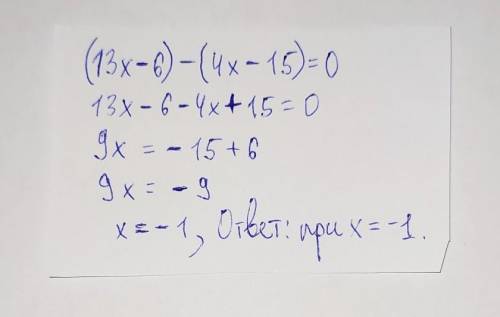 (13x-6)-(4x-15)=0
13x-6-4x+15=0
9x = -15+6
9x = -9
x=-1, Ответ: при x=-1.